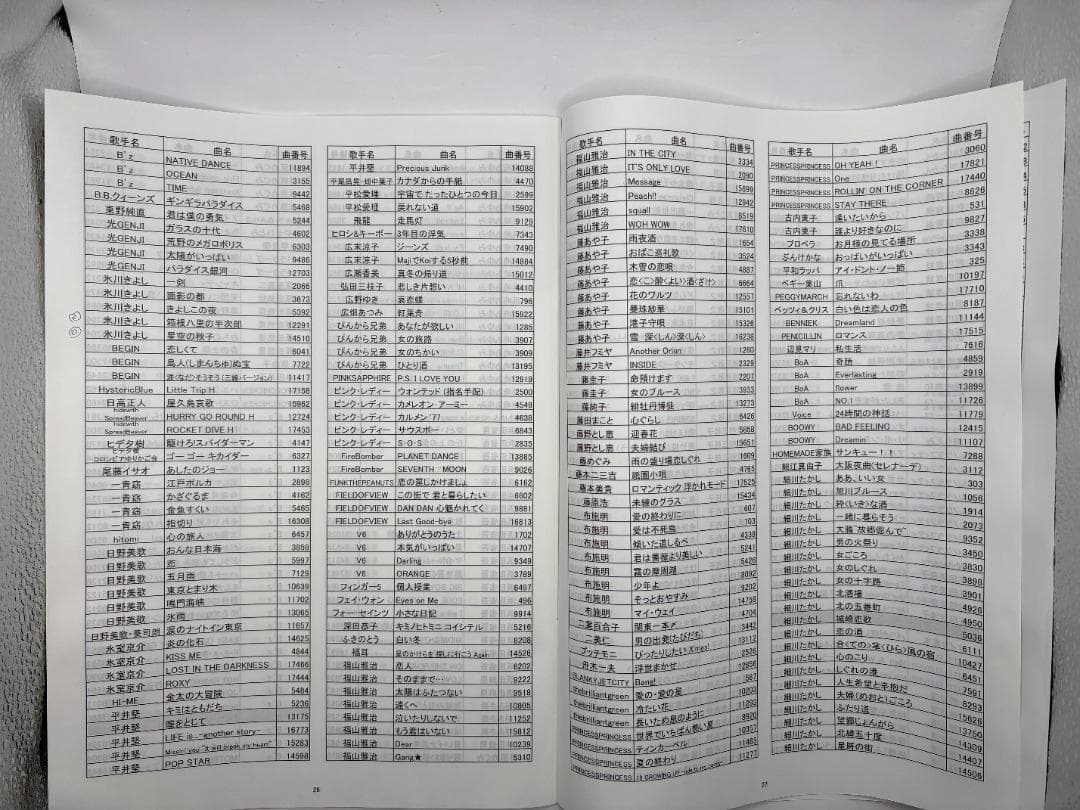 歌手名 曲名 曲番号
B'z NATIVE DANCE 11894
B'z OCEAN 3155
B'z TIME 9442
B.B.クィーンズ ギンギラパラダイス 5468
東野純直 君は僕の勇気 5244
光GENJI ガラスの十代 4602
光GENJI 荒野のメガロポリス 6303
光GENJI 太陽がいっぱい 9486
光GENJI パラダイス銀河 12703
氷川きよし 一剣 2066
氷川きよし 面影の都 3673
氷川きよし きよしこの夜 5532
氷川きよし 箱根八里の半次郎 12291
氷川きよし 星空の秋子 14510
BEGIN 恋しくて 6041
BEGIN 島人(しまんちゅ)ぬ宝 7722
BEGIN 涙(なだ)そうそう(三線バージョン) 11417
HystericBlue Little Trip H 17158
日高正人 屋久島哀歌 15962
hidewith SpreadBeaver HURRY GO ROUND H 12724
hidewith SpreadBeaver ROCKET DIVE H 17453
ヒデタ樹 駆けろ!スパイダーマン 4147
ヒデタ樹 コロンビアゆりかご会 ゴー ゴー キカイダー 6327
尾藤イサオ あしたのジョー 1123
一青窈 江戸ポルカ 2898
一青窈 かざぐるま 4162
一青窈 金魚すくい 5465
一青窈 指切り 16308
hitomi 心の旅人 6457
日野美歌 おんな日本海 3859
日野美歌 恋 5997
日野美歌 五月雨 7129
日野美歌 東京とまり木 10639
日野美歌 鳴門海峡 11702
日野美歌 氷雨 13065
日野美歌・葵司朗 涙のナイトイン東京 11657
氷室京介 炎の化石 14625
氷室京介 KISS ME 4844
氷室京介 LOST IN THE DARKNESS 17466
氷室京介 ROXY 17444
HI-ME 金太の大冒険 5484
平井堅 キミはともだち 5236
平井堅 瞳をとじて 13175
平井堅 LIFE is...~another story~ 16773
平井堅 Missin' you ~It will break my heart~ 15283
平井堅 POP STAR 14598
歌手名 曲名 曲番号
平井堅 Precious Junk 14088
平尾昌晃・畑中葉子 カナダからの手紙 4470
平松愛理 宇宙で たったひとつの今日 2599
平松愛理 戻れない道 15902
飛龍 走馬灯 9128
ヒロシ&キーボー 3年目の浮気 7343
広末涼子 ジーンズ 7490
広末涼子 MajiでKoiする5秒前 14884
広瀬香美 真冬の帰り道 15012
弘田三枝子 悲しき片想い 4410
広野ゆき 哀恋蝶 796
広畑あつみ 紅葉舟 15922
ぴんから兄弟 あなたが欲しい 1285
ぴんから兄弟 女の旅路 3907
ぴんから兄弟 女のちかい 3909
ぴんから兄弟 ひとり酒 13195
PINKSAPPHIRE P.S. I LOVE YOU 12919
ピンク・レディー ウォンテッド (指名手配) 2500
ピンク・レディー カメレオン・アーミー 4548
ピンク・レディー カルメン '77 4638
ピンク・レディー サウスポー 6843
ピンク・レディー S・O・S 2835
FireBomber PLANET DANCE 13885
FireBomber SEVENTH MOON 9026
FUNKTHEPEANUTS 恋の罠しかけましょ 6162
FIELDOFVIEW この街で 君と暮らしたい 6602
FIELDOFVIEW DAN DAN 心魅かれてく 9881
FIELDOFVIEW Last Good-bye 16813
V6 ありがとうのうた 1702
V6 本気がいっぱい 14707
V6 Darling 9349
V6 ORANGE 3789
フィンガー5 個人授業 6497
フェイ・ウォン Eyes on Me 496
フォー・セインツ 小さな日記 9914
深田恭子 キミノヒトミニ コイシテル 5216
ふきのとう 白い冬 8208
福耳 星のかけらを 探しに行こう Again 14526
福山雅治 恋人 6202
福山雅治 そのままで… 9222
福山雅治 太陽はふたつない 9518
福山雅治 遠くへ 10805
福山雅治 泣いたりしないで 11252
福山雅治 もう君はいない 15812
福山雅治 Dear 10239
福山雅治 Gang★ 5310
26
歌手名 曲名 曲番号
福山雅治 IN THE CITY 2334
福山雅治 IT'S ONLY LOVE 2090
福山雅治 Message 15699
福山雅治 Peach!! 12942
福山雅治 squall 8519
福山雅治 WOH WOW 17610
藤あや子 雨夜酒 1654
藤あや子 おばこ巡礼歌 3524
藤あや子 木雪の恋唄 4887
藤あや子 恋〈こ〉酔〈よい〉酒〈ざけ〉 6664
藤あや子 花のワルツ 12557
藤あや子 曼珠沙華 15101
藤あや子 港子守唄 15326
藤あや子 雪 深〈しん〉深〈しん〉 16238
藤井フミヤ Another Orion 1260
藤井フミヤ INSIDE 2329
藤圭子 命預けます 2207
藤圭子 女のブルース 3933
藤純子 緋牡丹博徒 13273
藤田まこと 心ぐらし 6426
藤野とし恵 迎春花 5658
藤野とし恵 夫婦結び 15651
藤めぐみ 雨の盛り場恋しぐれ 1609
藤本二三吉 祇園小唄 4765
藤本美貴 ロマンティック 浮かれモード 17525
藤原浩 未練のグラス 15434
布施明 愛の終わりに 607
布施明 愛は不死鳥 103
布施明 傾いた道しるべ 4339
布施明 君は薔薇より美しい 5241
布施明 霧の摩周湖 5428
布施明 少年よ 8092
布施明 そっとおやすみ 9202
布施明 マイ・ウェイ 14798
二葉百合子 関東一本〆 4704
二美仁 男の出発(たびだち) 3442
プッチモニ ぴったりしたいX'mas! 13112
舟木一夫 浮世まかせ 2526
BLANKYJETCITY Bang! 12856
thebrilliantgreen 愛の♥愛の星 587
thebrilliantgreen 冷たい花 10203
thebrilliantgreen 長いため息のように 11203
PRINCESSPRINCESS 世界でいちばん熱い夏 8920
PRINCESSPRINCESS ティンカーベル 10357
PRINCESSPRINCESS 夏の終わり 11462
PRINCESSPRINCESS 11277
27
歌手名 曲名 曲番号
PRINCESSPRINCESS OH YEAH! 3060
PRINCESSPRINCESS One 17821
PRINCESSPRINCESS ROLLIN' ON THE CORNER 17440
PRINCESSPRINCESS STAY THERE 8626
古内東子 逢いたいから 531
古内東子 誰より好きなのに 9827
プロペラ お月様の見てる場所 3338
ぶんけかな おっぱいがいっぱい 3343
平和ラッパ アイ・ドント・ノー節 325
ペギー葉山 爪 10197
PEGGYMARCH 忘れないわ 17710
ベッツィ&クリス 白い色は恋人の色 8187
BENNIEK Dreamland 11144
PENICILLIN ロマンス 17515
辺見マリ 私生活 7616
BoA 奇蹟 4859
BoA Everlasting 2919
BoA flower 13899
BoA NO.1 11726
Voice 24時間の神話 11779
BOOWY BAD FEELING 12415
BOOWY Dreamin' 11107
HOMEMADE家族 サンキュー!! 7288
細江真由子 大阪夜曲(セレナーデ) 3112
細川たかし ああ、いい女 303
細川たかし 旭川ブルース 1056
細川たかし 粋(いき)な酒 1914
細川たかし 一緒に暮らそう 2073
細川たかし 9352
細川たかし 男の火祭り 3450
細川たかし 女ごころ 3830
細川たかし 女のしぐれ 3898
細川たかし 女の十字路 3901
細川たかし 北酒場 4928
細川たかし 北の五番町 4950
細川たかし 城崎恋歌 5036
細川たかし 恋の酒 6111
細川たかし 合〈くて〉の宅〈ひら〉風の宿 10427
細川たかし 心のこり 6451
細川たかし しぐれの港 7591
細川たかし 人生希望と辛抱だ 8293
細川たかし 夫婦(めおと)ごころ 15826
細川たかし ふたり道 13750
細川たかし 望郷じょんがら 14309
細川たかし 北緯五十度 14407
細川たかし 星屑の街 14506